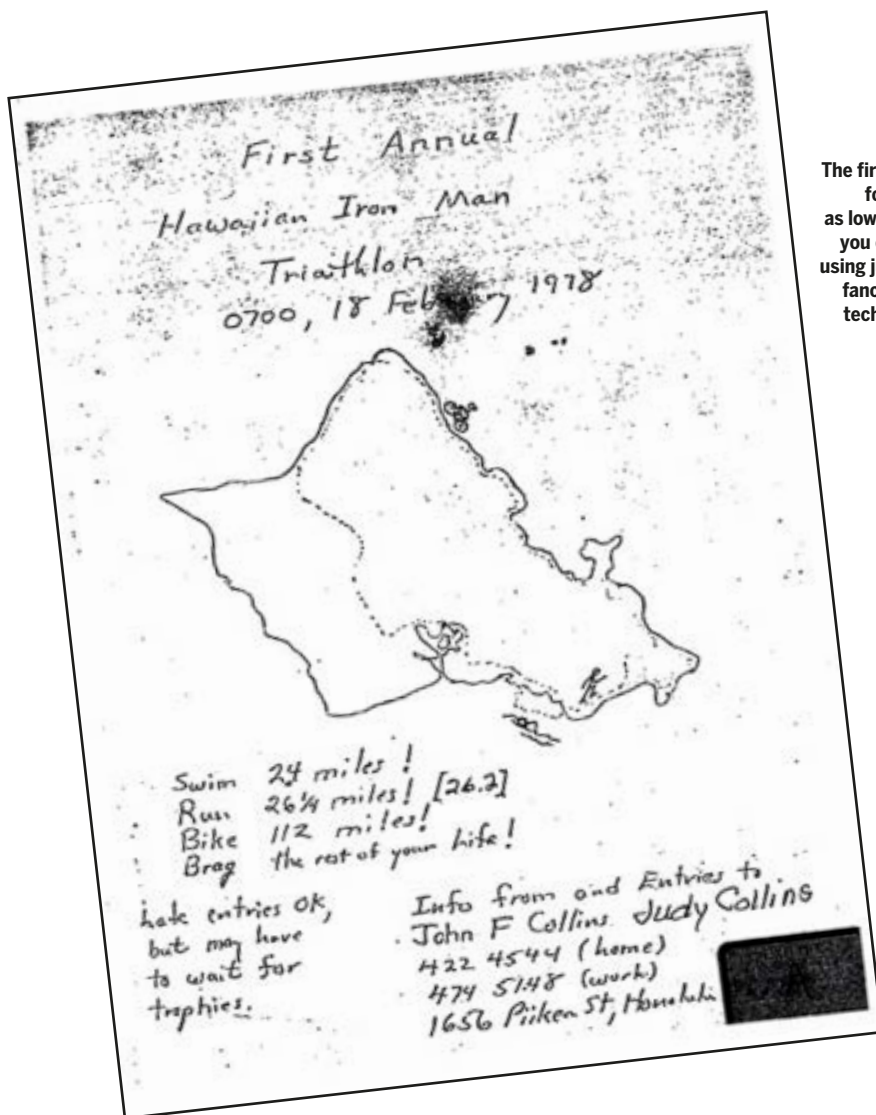 First Annual
Hawaiian Iron Man
Triathlon
0700, 18 February 1978
Swim 2.4 miles !
Run 26 1/4 miles! [26.2]
Bike 112 miles!
Brag the rest of your life!
Late entries OK,
but may have
to wait for
trophies.
Info from and Entries to
John F Collins. Judy Collins
422 4544 (home)
474 5148 (work)
1656 Piiken St, Honolulu
The fir
fo
as low
you
using j
fanc
tech